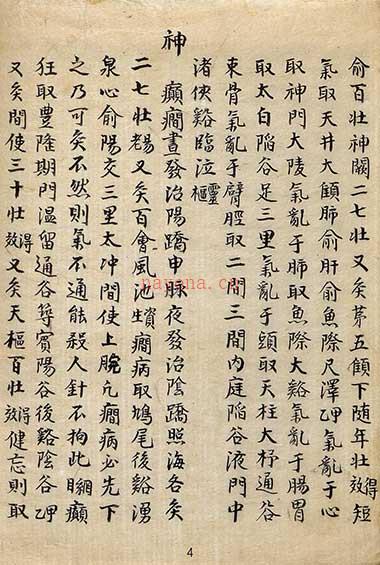 俞百壯神闕二七壯又灸第五顀下随年壯得效短
氣取天井大顀肺俞肝俞魚際尺澤甲乙氣亂于心
取神門大陵氣亂于肺取魚際大谿氣亂于腸胃
取太白陷谷足三里氣亂于頭取天柱大杼通谷
束骨氣亂于臂脛取二間三間內庭陷谷液門中
渚俠谿臨泣靈樞
神
癲癎晝發治陽蹻申脉夜發治陰蹻照海各灸
二七壯易老又灸百會風池資生癎病取鳩尾後谿湧
泉心俞陽交三里太冲間使上脘凢癎病必先下
之乃可灸不然則氣不通能殺人針不拘此綱目癲
狂取豊隆期門温留通谷築賓陽谷後谿陰谷甲乙
又灸間使三十壯得效又灸天樞百壯得效健忘則取
4